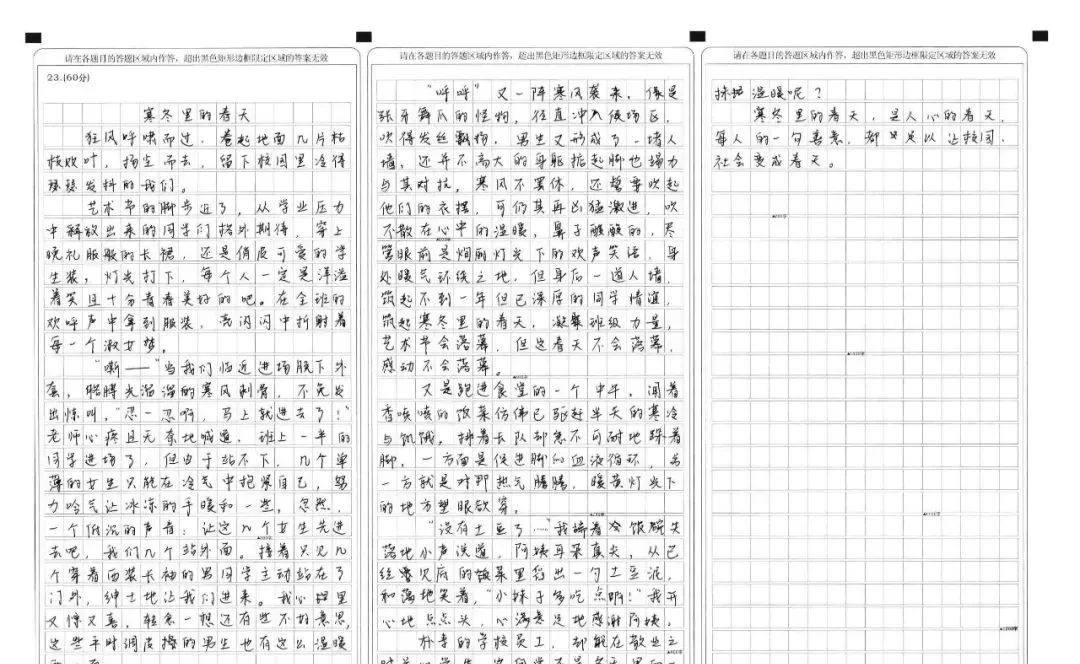 请在各题目的答题区域内作答，超出黑色矩形边框限定区域的答案无效
23.(60分)
寒冬里的春天
狂风呼啸而过，卷起地面几片枯
枝败叶，扬尘而去，留下校园里冷得
瑟瑟发抖的我们。
艺术节的脚步近了，从学业压力
中解放出来的同学们格外期待，穿上
晚礼服般的长裙，还是俏皮可爱的学
生装，灯光打下，每个人一定是洋溢
着笑且十分青春美好的吧。在全班的
欢呼声中拿到服装，亮闪闪中折射着
每一个淑女梦。
“嘶——”当我们临近进场脱下外
套，胳膊光溜溜的寒风刺骨，不免发
出惊叫，“忍一忍啊，马上就进去了！”
老师心疼且无奈地喊道，班上一半的
同学进场了，但由于站不下，几个单
薄的女生只能在冷气中抱紧自己，努
力哈气让冰凉的手暖和一些，忽然，
一个低沉的声音：让这几个女生先进
去吧，我们几个站外面。接着只见几
个穿着西装长袖的男同学主动站在了
门外，绅士地让我们进来。我心里
又惊又喜，轻念一想还有些不好意思，
这些平时调皮捣的男生也有这么温暖
请在各题目的答题区域内作答，超出黑色矩形边框限定区域的答案无效
“呼呼”又一阵寒风袭来，像是
张牙舞爪的怪物，径直冲入候场区，
吹得发丝飘扬，男生又形成了一堵人
墙，还并不高大的身躯掂起脚也竭力
与其对抗，寒风不罢休，还誓要吹起
他们的衣摆，可仍其再凶猛激进，吹
不散在心中的温暖，鼻子酸酸的，尽
管眼前是炯丽灯光下的欢声笑语，身
处暖气环绕之地，但身后一道人墙，
筑起不到一年但已深厚的同学情谊，
筑起寒冬里的春天，凝聚班级力量，
艺术节会落幕，但这春天不会落幕，
感动不会落幕。
又是跑进食堂的一个中午，闻着
香喷喷的饭菜仿佛已驱赶半天的寒冷
与饥饿，排着长队却急不可耐地踩着
脚，一方面是促进脚的血液循环，另
一方就是对那热气腾腾，暖黄灯光下
的地方望眼欲穿。
“没有土豆了……”我端着冷饭碗失
落地小声说道，阿姨耳朵真尖，从已
经见底的饭菜里舀出一勺土豆泥，
和蔼地笑着，“小妹子多吃点啊！”我开
心地点点头，心满意足地感谢阿姨。
朴素的学校员工，却能在散业之
请在各题目的答题区域内作答，超出黑色矩形边框限定区域的答案无效
温暖呢？
寒冬里的春天，是人心的春天，
每人的一句善意，都足以让校园，
社会变成春天。